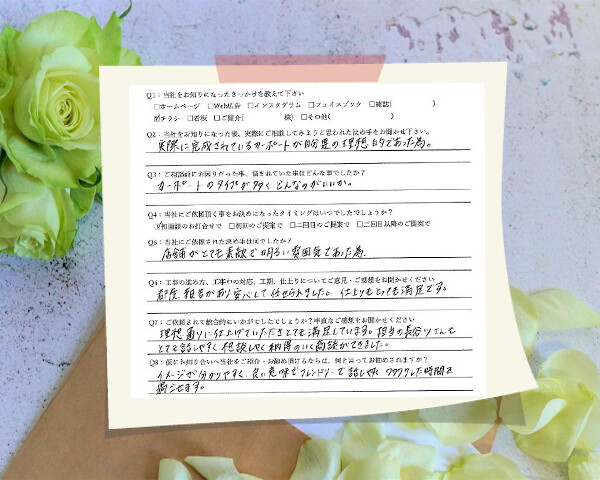 Q1：当社をお知りになったきっかけを教えて下さい
□ホームページ □Web広告 □インスタグラム □フェイスブック □雑誌( )
☑チラシ □看板 □ご紹介( 様) □その他( )
Q2：当社をお知りになった後、実際にご相談してみようと思われた決め手をお聞かせ下さい。
実際に完成されているカーポートが自分達の理想的であった為。
Q3：ご相談前にお困りだった事、悩まれていた事はどんな事でしたか？
カーポートのタイプが多く どんなのがいいか。
Q4：当社にご依頼頂く事をお決めになったタイミングはいつでしたでしょうか？
☑初面談のお打合せで □初回のご提案で □二回目のご提案で □二回目以降のご提案で
Q5：当社にご依頼された決め事は何でしたか？
店舗がとても素敵で明るい雰囲気であった為
Q6：工事の進め方、工事中の対応、工期、仕上りについてご意見・ご感想をお聞かせください
都度、報告があり安心して任せられました。仕上りもとっても満足です。
Q7：ご依頼されて総合的にいかがでしたでしょうか？率直なご感想をお聞かせください
理想通りに仕上げていただきとても満足しています。担当の長谷川さんも
とても話しやすく相談しやすく納得のいく商談ができました。
Q8：仮にお知り合いへ当社をご紹介・お勧め頂けるならば、何と言ってお勧めされますか？
イメージが分かりやすく、良い意味でフレンドリーで話しやすい ワクワクした時間を
過ごせます。